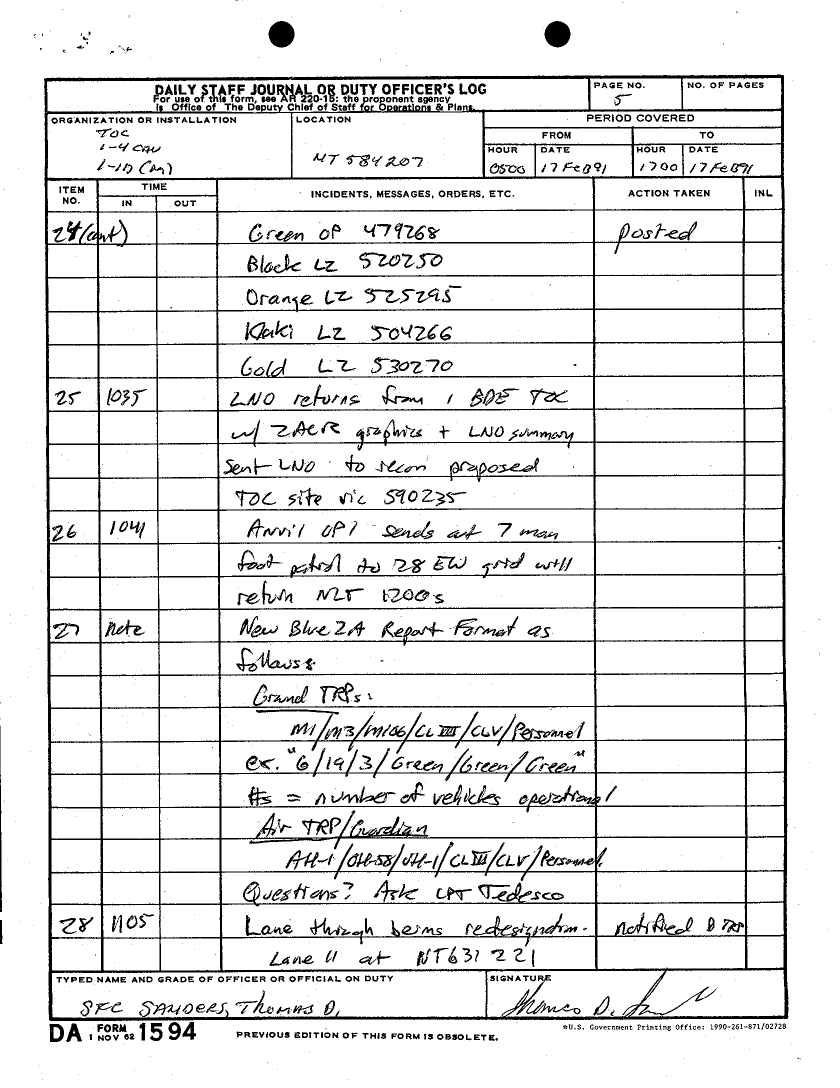 DAILY STAFF JOURNAL OR DUTY OFFICER'S LOG
For use of this form, see AR 220-15; the proponent agency
is Office of The Deputy Chief of Staff for Operations & Plans.
PAGE NO.
5
NO. OF PAGES
ORGANIZATION OR INSTALLATION
TOC
1-4 CAV
1-ID (M)
LOCATION
NT 584207
PERIOD COVERED
FROM
TO
HOUR
DATE
HOUR
DATE
0500
17 Feb 91
1700
17 Feb 91
ITEM NO.
TIME
IN
OUT
INCIDENTS, MESSAGES, ORDERS, ETC.
ACTION TAKEN
INL
24 (cont) Green OP 479268 posted
Black LZ 520250
Orange LZ 525295
Khaki LZ 504266
Gold LZ 530270
25 1035 LNO returns from 1 BDE TOC
w/ 2ACR graphics + LNO summary
Sent LNO to recon proposed
TOC site vic 590235
26 1041 Anvil OP1 sends out 7 man
foot patrol to 28 EW grid will
return NLT 1200s
27 Note New Blue 2A Report Format as
follows:
Grand TRPs:
M1/M3/M106/CL III/CLV/Personnel
ex. "6/19/3/Green/Green/Green"
#s = number of vehicles operational
Air TRP/Guardian
AH-1/OH-58/UH-1/CL III/CLV/Personnel.
Questions? Ask CPT Tedesco
28 1105 Lane through berms redesignation. notified B TRP
Lane 11 at NT631221
TYPED NAME AND GRADE OF OFFICER OR OFFICIAL ON DUTY
SFC SAUNDERS, Thomas D.
SIGNATURE
Thomas D.
DA FORM 1 NOV 62 1594
PREVIOUS EDITION OF THIS FORM IS OBSOLETE.
*U.S. Government Printing Office: 1990-261-871/02728